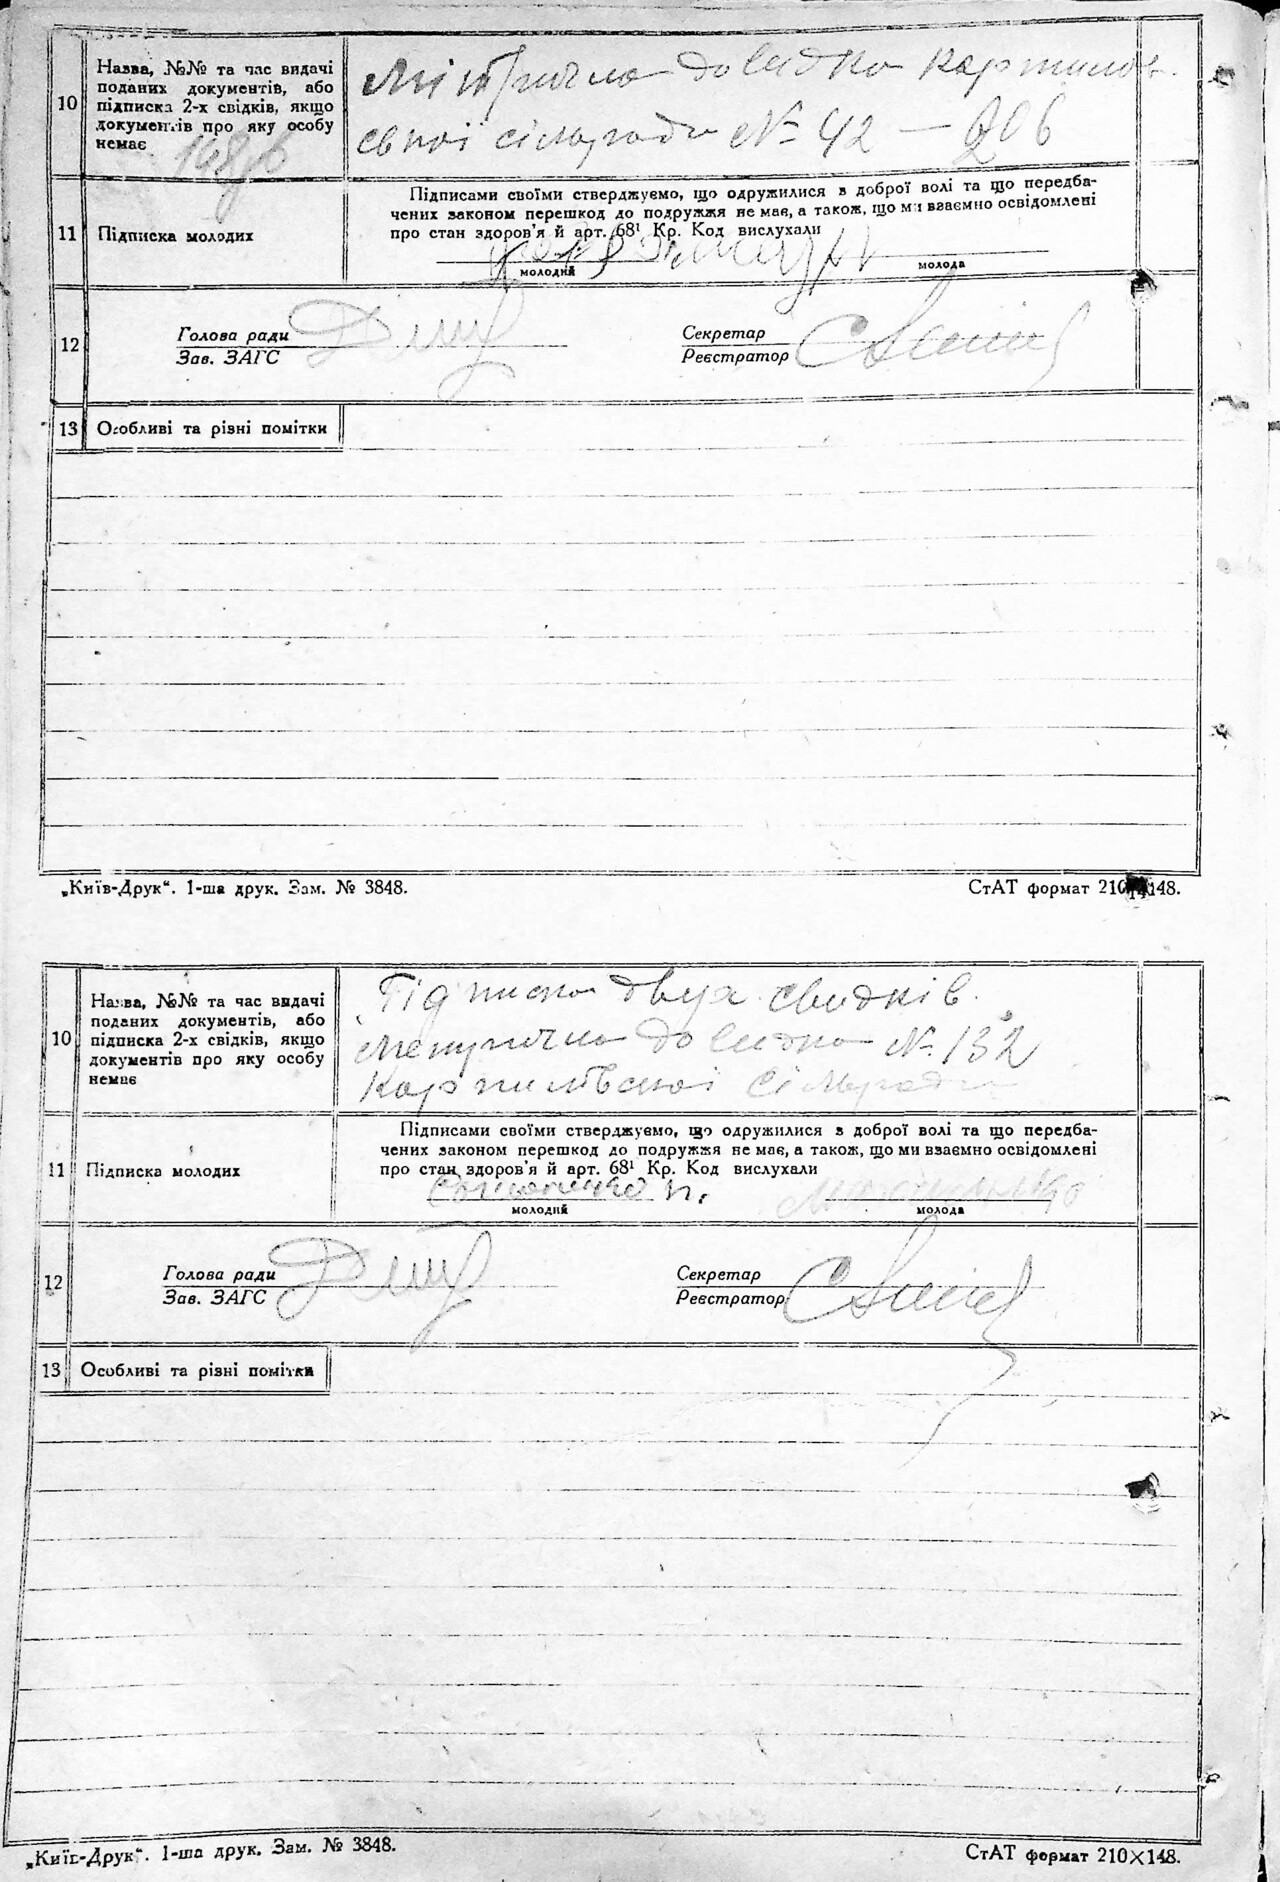 10
Назва, №№ та час видачі
поданих документів, або
підписка 2-х свідків, якщо
документів про яку особу
немає
довидка
сільради № 42 — 206
11
Підписка молодих
Підписами своїми стверджуємо, що одружилися з доброї волі та що передба-
чених законом перешкод до подружжя не має, а також, що ми взаємно освідомлені
про стан здоров'я й арт. 68¹ Кр. Код вислухали
молодий
молода
12
Голова ради
Зав. ЗАГС
Секретар
Реєстратор
13
Особливі та різні помітки
„Київ-Друк“. 1-ша друк. Зам. № 3848.
СтАТ формат 210 148.
10
Назва, №№ та час видачі
поданих документів, або
підписка 2-х свідків, якщо
документів про яку особу
немає
Підписка двух свидків.
довидка № 132
Карпилівської сільради
11
Підписка молодих
Підписами своїми стверджуємо, що одружилися з доброї волі та що передба-
чених законом перешкод до подружжя не має, а також, що ми взаємно освідомлені
про стан здоров'я й арт. 68¹ Кр. Код вислухали
молодий
молода
12
Голова ради
Зав. ЗАГС
Секретар
Реєстратор
13
Особливі та різні помітки
„Київ-Друк“. 1-ша друк. Зам. № 3848.
СтАТ формат 210×148.